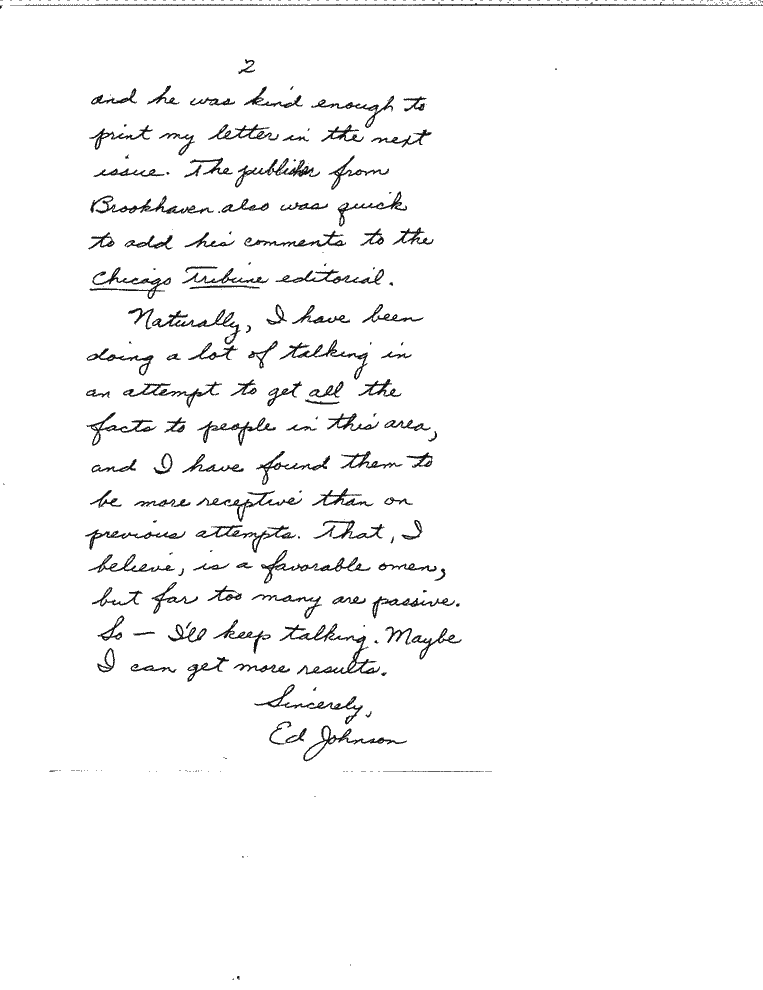 2
and he was kind enough to
print my letter in the next
issue. The publisher from
Brookhaven also was quick
to add his comments to the
Chicago Tribune editorial.
Naturally, I have been
doing a lot of talking in
an attempt to get all the
facts to people in this area,
and I have found them to
be more receptive than on
previous attempts. That, I
believe, is a favorable omen,
but far too many are passive.
So — I'll keep talking. Maybe
I can get more results.
Sincerely,
Ed Johnson